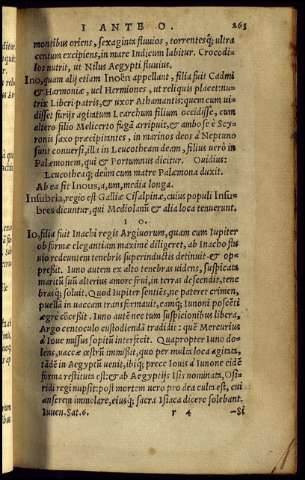 I ANTE O. 263
montibus oriens, sexaginta fluuios, torrentesq; ultra
centum excipiens, in mare Indicum labitur. Crocodi-
los nutrit, ut Nilus Aegypti fluuius.
Ino, quam alij etiam Inoën appellant, filia fuit Cadmi
& Harmoniæ, uel Hermiones, ut reliquis placet: nu-
trix Liberi patris, & uxor Athamantis: quem cum ui-
disset furijs agitatum Learchum filium occidisse, cum
altero filio Melicerto fugā arripuit, & ambo se è Scy-
ronis saxo præcipitantes, in marinos deos à Neptuno
sunt conuersi, illa in Leucotheam deam, filius uerò in
Palæmonem, qui & Portunnus dicitur. Ouidius:
Leucotheaq; deûm cum matre Palæmona duxit.
Ab ea fit Inous, a, um, media longa.
Insubria, regio est Galliæ Cisalpinæ, cuius populi Insu-
bres dicuntur, qui Mediolani & alia loca tenuerunt.
I O.
Io, filia fuit Inachi regis Argiuorum, quam cum Iupiter
ob formæ elegantiam maximè diligeret, ab Inacho flu-
uio redeuntem tenebris superinductis detinuit & op-
pressit. Iuno autem ex alto tenebras uidens, suspicata
maritū suū alterius amore frui, in terras descendit, tene-
brasq; soluit. Quod Iupiter sentiēs, ne pateret crimen,
puellā in uaccam transformauit, eamq; Iunoni poscēti
ægrè cōcessit. Iuno autē nec tum suspicionibus libera,
Argo centoculo custodiendā tradidit: quē Mercurius
à Ioue missus sopitū interfecit. Quapropter Iuno do-
lens, uaccæ œstrū immisit, quo per multa loca agitata,
tādē in Aegyptū uenit, ibiq; prece Iouis à Iunone ei dē
formæ restituta est: & ab Aegyptijs Isis nominata, Osi-
ridi regi nupsit: post mortem uero pro dea culta est, cui
anserem immolare, eiusq; sacra Isiaca dicere solebant.
Iuuen. Sat. 6. r 4 -Si